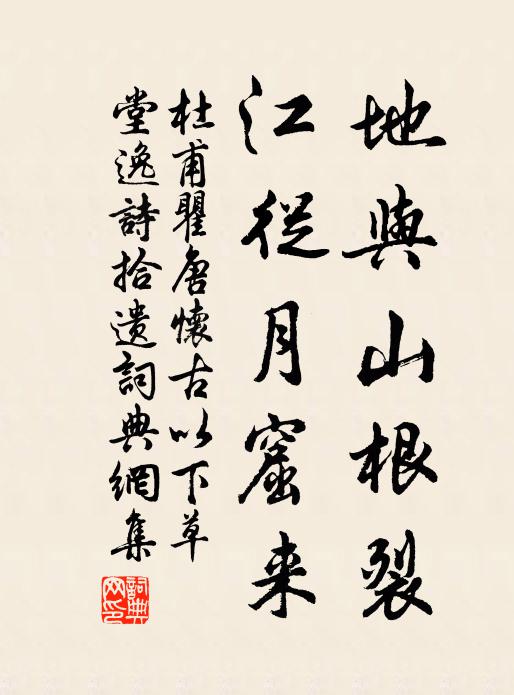 地與山根裂
江從月窟来
杜甫瞿唐懷古以下草
堂逸詩拾遺詞典網集
詞典
网印